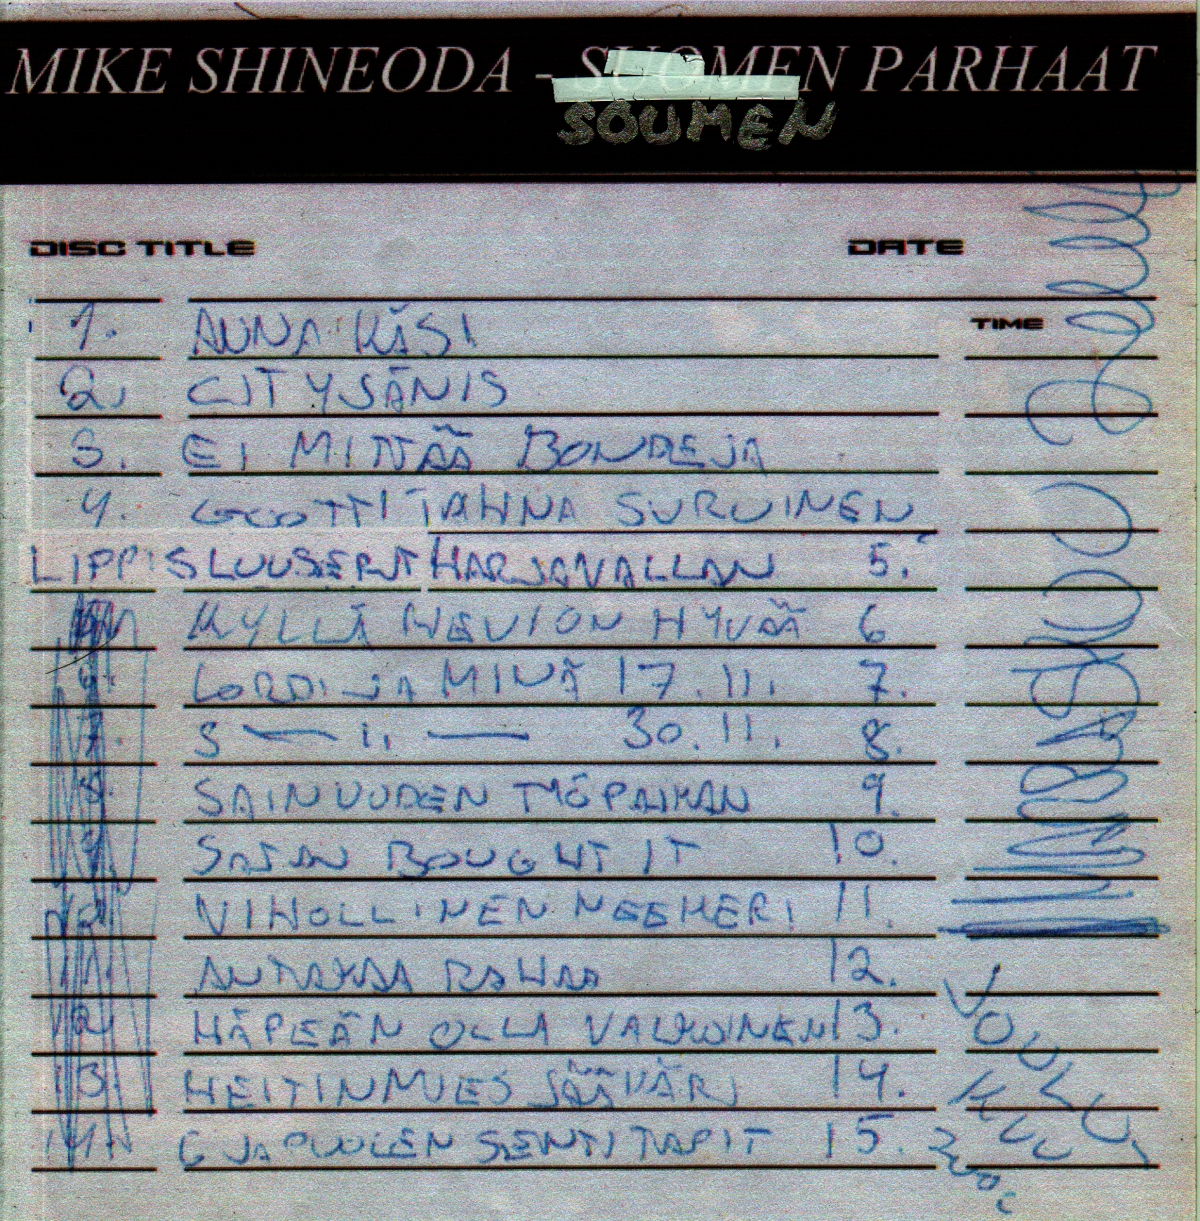 MIKE SHINEODA - SUOMEN PARHAAT
SOUMEN
DISC TITLE DATE
TIME
1. ANNA KÄSI
2. CITYSÄNIS
3. EI MITÄÄ BONDEJA
4. GOOTTITAHNA SURUINEN
LIPPISLUUSERIT HARJAVALLAN 5.
KYLLÄ HEVION HYVÄÄ 6
LORDI JA MINÄ 17.11. 7.
S — 1. — 30.11. 8.
SAIN UUDEN TYÖPAIKAN 9.
SATAN BOUGHT IT 10.
VIHOLLINEN NEEKERI 11.
ANTAKAA RAHAA 12.
HÄPEÄN OLLA VALKOINEN 13.
HEITINMIES JÄÄVÄRI 14.
6 JA PUOLEN SENTIT TAPIT 15.
JOULU
KUU